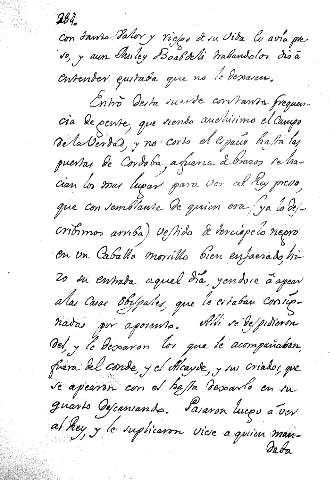 284.
con tanto valor y riesgo de su vida lo avia pre
so, y aun Muley Boabdeli hablandolos dió á
entender gustaba que no le dexasen.
Entró desta suerte con tanta frequen
cia de gente, que siendo anchisimo el Campo
de la Verdad, y no corto el espacio hasta las
puertas de Cordoba, a fuerza de brazos se ha
cian los mas lugar para ver al Rey preso,
que con semblante de quien era (ya lo des
cribimos arriba) vestido de terciopelo negro
en un Caballo morsillo bien enjaezado, hi
zo su entrada aquel día, yendose á apear
a las Casas Obispales, que le estaban consig
nadas por aposento. Alli se despidieron
del, y le dexaron los que le acompañaban,
fuera del Conde, y el Alcayde, y sus criados, que
se apearon con el hasta dexarlo en su
quarto descansando. Pasaron luego á ver
al Rey, y le suplicaron viese a quien man
daba